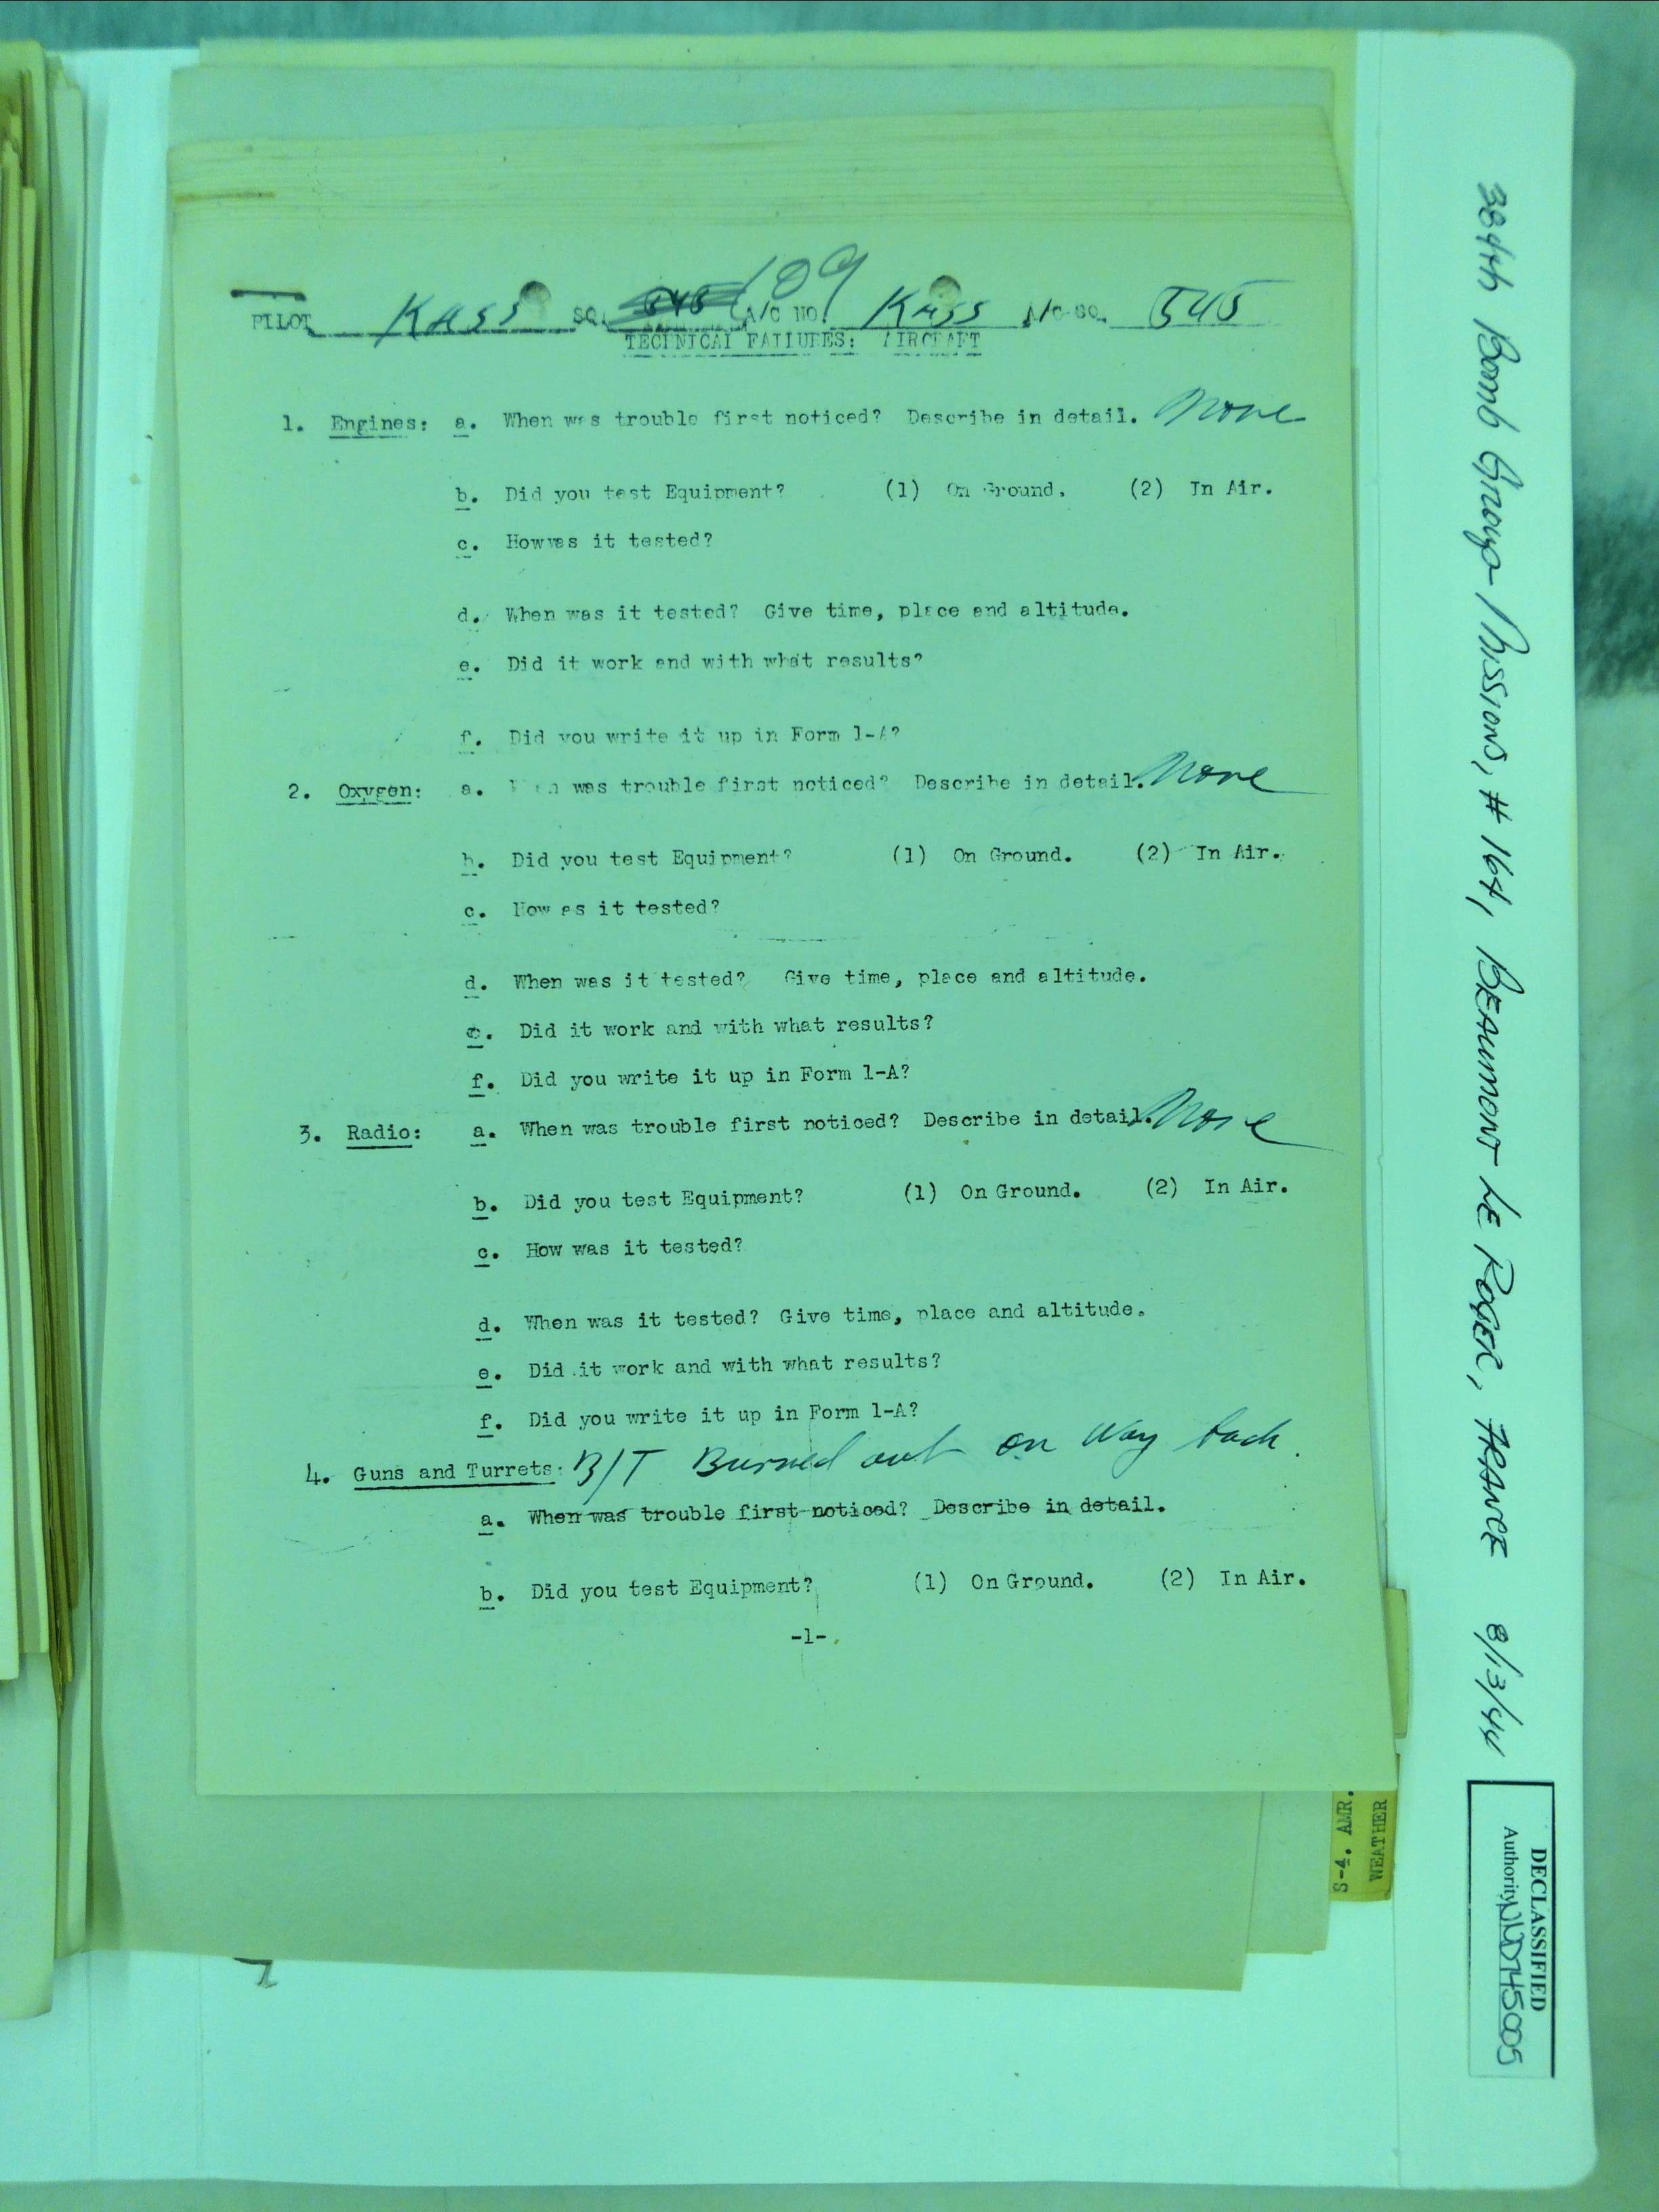 109
PILOT Kass SQ. 545 A/C NO. Kass A/C SQ. 545
TECHNICAL FAILURES: AIRCRAFT
1. Engines: a. When was trouble first noticed? Describe in detail. None
b. Did you test Equipment? (1) On Ground. (2) In Air.
c. How was it tested?
d. When was it tested? Give time, place and altitude.
e. Did it work and with what results?
f. Did you write it up in Form 1-A?
2. Oxygen: a. When was trouble first noticed? Describe in detail. None
b. Did you test Equipment? (1) On Ground. (2) In Air.
c. How was it tested?
d. When was it tested? Give time, place and altitude.
e. Did it work and with what results?
f. Did you write it up in Form 1-A?
3. Radio: a. When was trouble first noticed? Describe in detail. None
b. Did you test Equipment? (1) On Ground. (2) In Air.
c. How was it tested?
d. When was it tested? Give time, place and altitude.
e. Did it work and with what results?
f. Did you write it up in Form 1-A?
4. Guns and Turrets: B/T Burned out on way back.
a. When was trouble first noticed? Describe in detail.
b. Did you test Equipment? (1) On Ground. (2) In Air.
-1-
S-4. AMR.
WEATHER
384th Bomb Group Missions, # 164, BEAUMONT LE ROGER, FRANCE 8/13/44
DECLASSIFIED
Authority NND745005